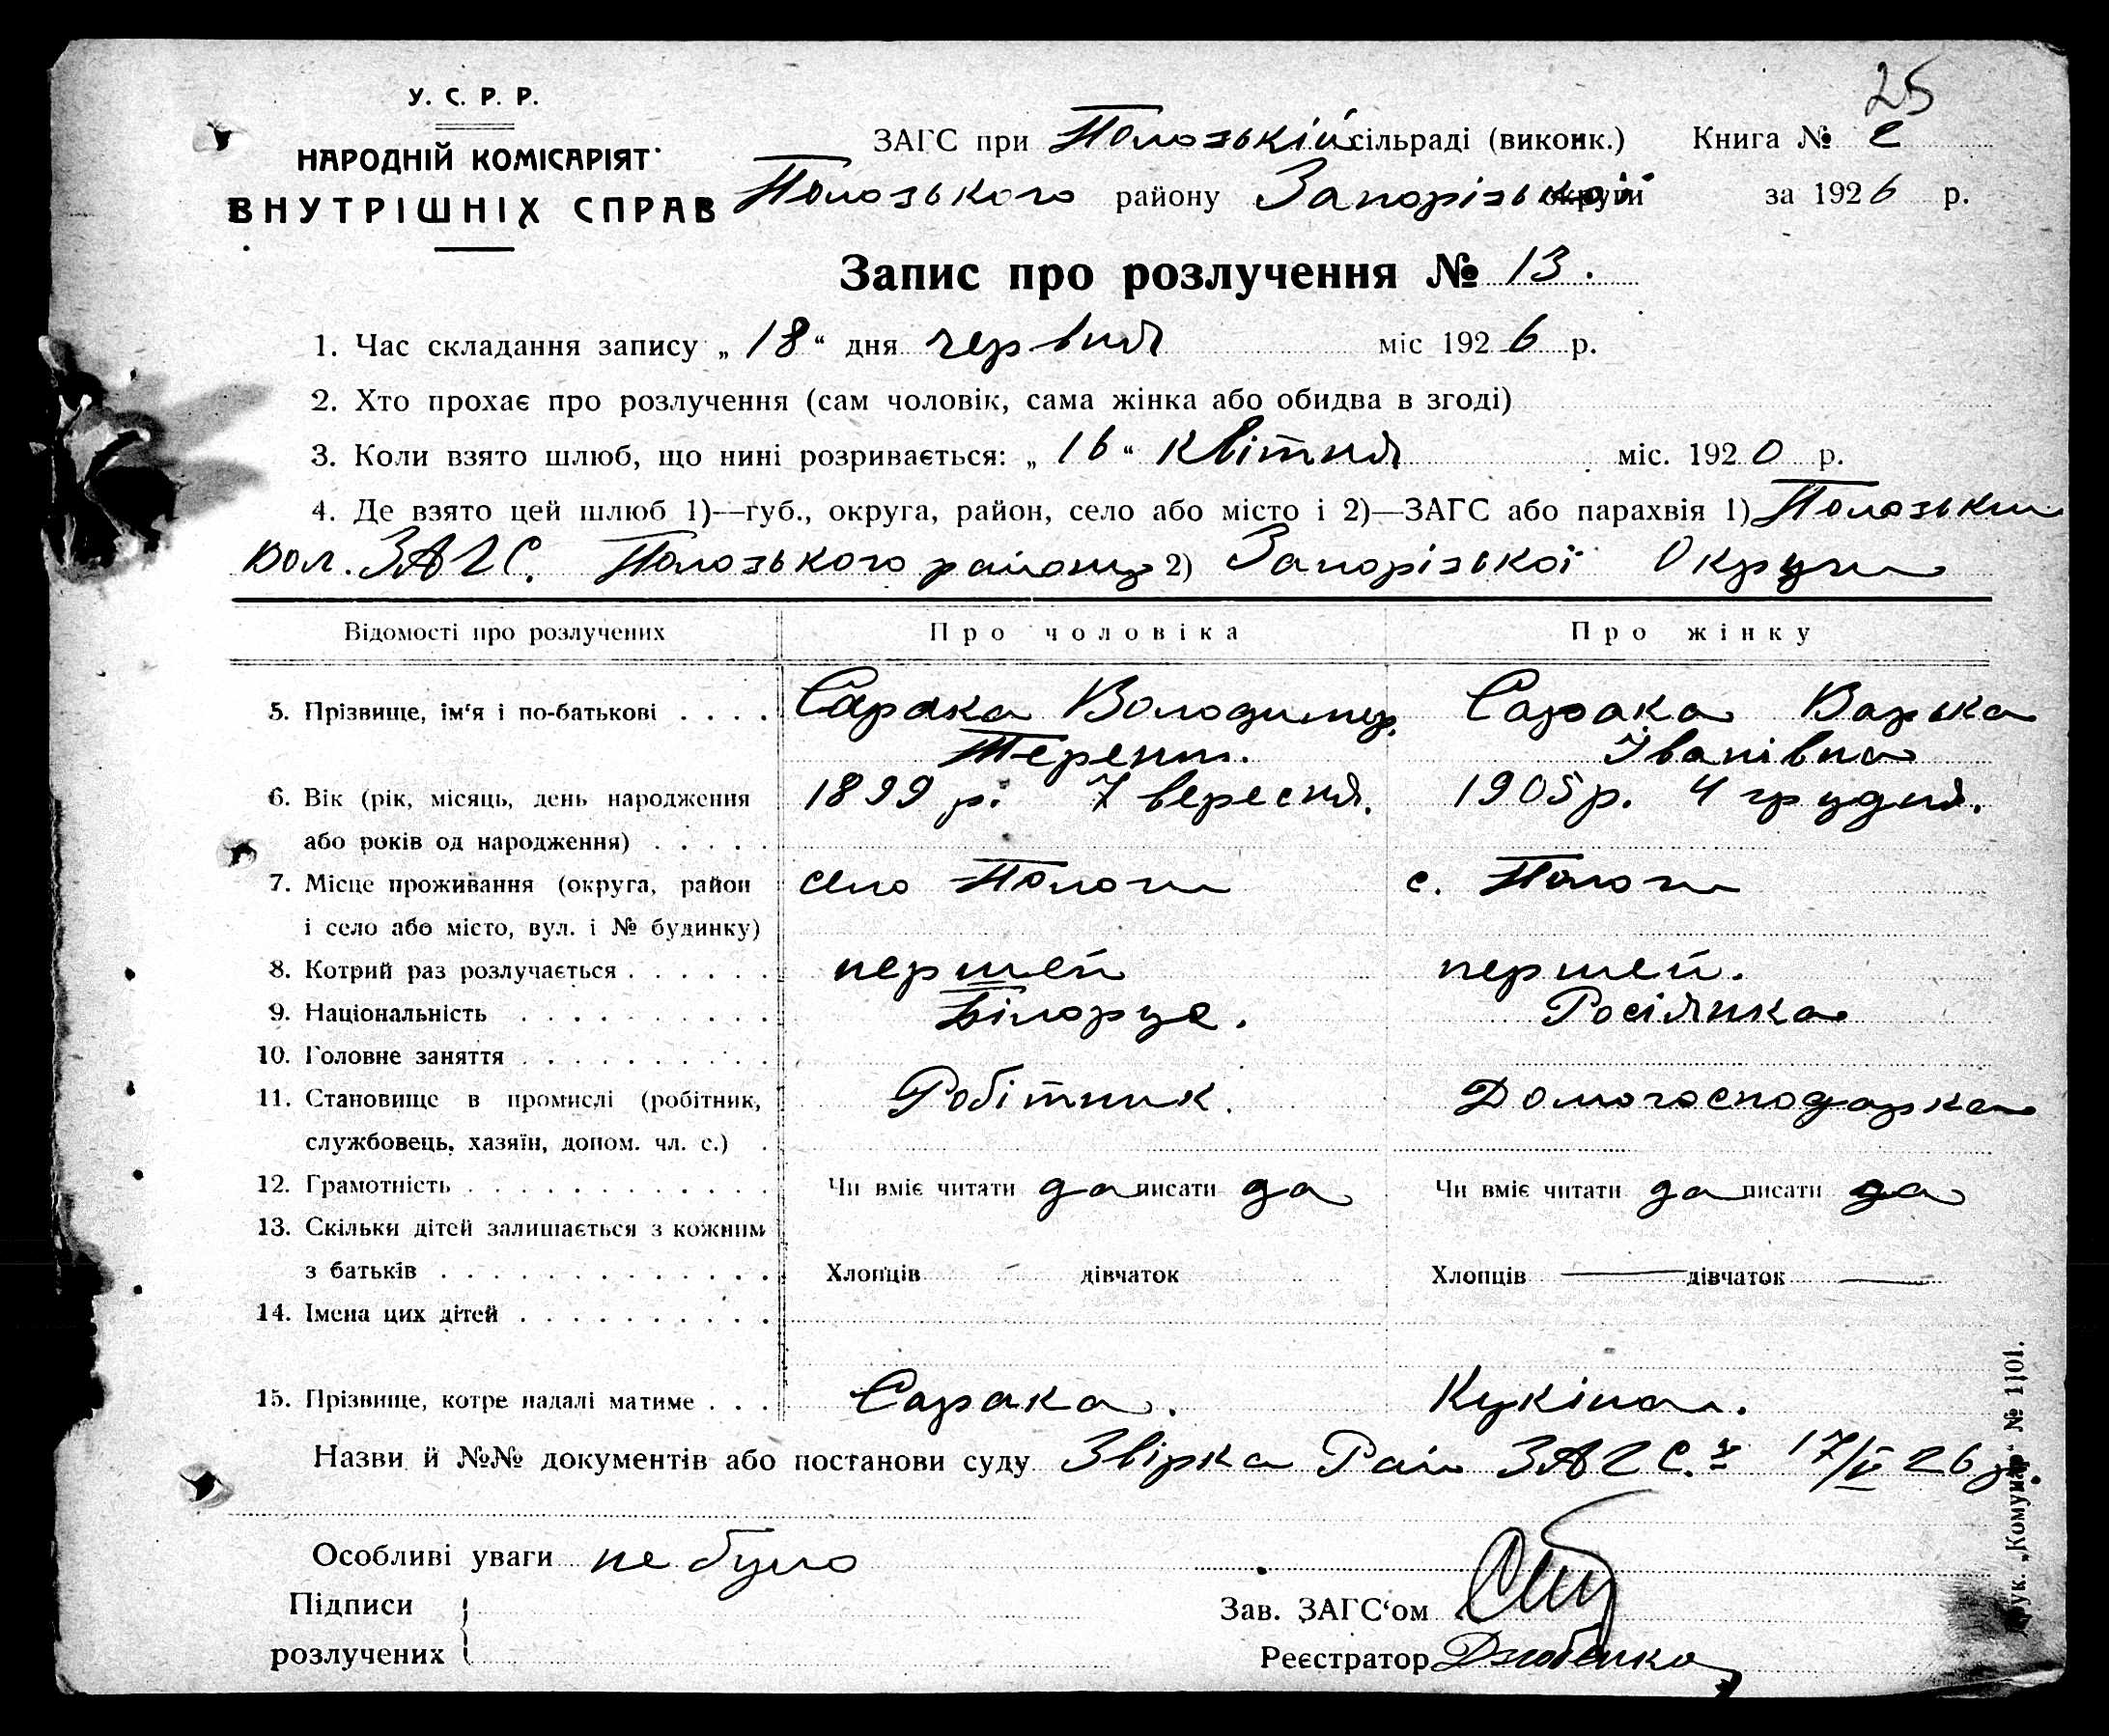 25
У. С. Р. Р.
НАРОДНІЙ КОМІСАРІЯТ
ВНУТРІШНІХ СПРАВ
ЗАГС при Полозькій сільраді (виконк.) Книга №
Полозького району Запорізької округи за 1926 р.
Запис про розлучення № 13.
1. Час складання запису „18“ дня червня міс 1926 р.
2. Хто прохає про розлучення (сам чоловік, сама жінка або обидва в згоді)
3. Коли взято шлюб, що нині розривається: „16“ квітня міс. 1920 р.
4. Де взято цей шлюб 1)—губ., округа, район, село або місто і 2)—ЗАГС або парахвія 1) Полозьким
вол. ЗАГС. Полозького району 2) Запорізької Округи
Відомості про розлучених Про чоловіка Про жінку
5. Прізвище, ім‘я і по-батькові . . . . Сарака Володимир. Сарака Варька
Терент. Іванівна
6. Вік (рік, місяць, день народження 1899 р. 7 вересня. 1905 р. 4 грудня.
або років од народження) . . . . .
7. Місце проживання (округа, район село Пологи с. Пологи
і село або місто, вул. і № будинку)
8. Котрий раз розлучається . . . . . . першей першей.
9. Національність . . . . . . . . . . Білорус. Росіянка
10. Головне заняття . . . . . . . . . .
11. Становище в промислі (робітник, Робітник. Домогосподарка
службовець, хазяїн, допом. чл. с.) .
12. Грамотність . . . . . . . . . . . . Чи вміє читати да писати да Чи вміє читати да писати да
13. Скільки дітей залишається з кожним
з батьків . . . . . . . . . . . . . Хлопців — дівчаток Хлопців — дівчаток —
14. Імена цих дітей . . . . . . . . . .
15. Прізвище, котре надалі матиме . . . Сарака. Кукіна.
Назви й №№ документів або постанови суду Звірка Рай ЗАГС.у 17/V 26 р.
Особливі уваги не було
Підписи
розлучених
Зав. ЗАГС‘ом
Реєстратор
Друк. „Комунар“ № 1101.